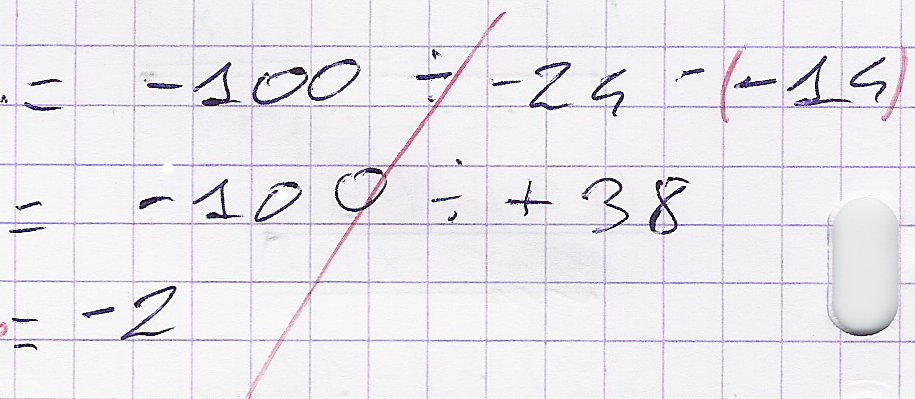 = -100 ÷ -24 - (-14)
= -100 ÷ + 38
= -2